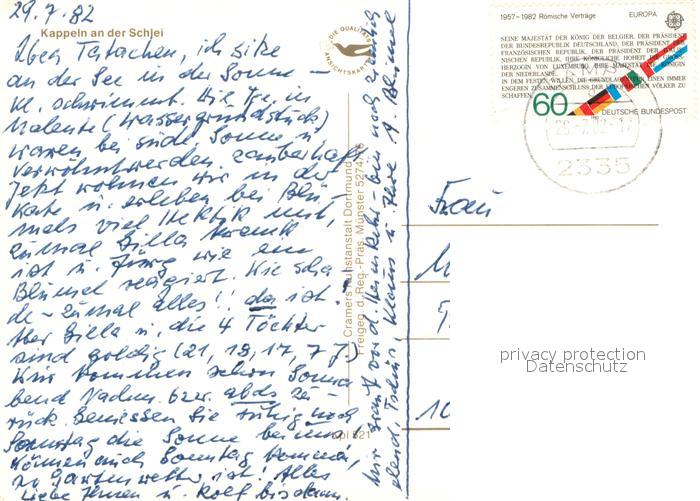 29.7.82
Kappeln an der Schlei
Ueber Tatsachen, ich sitze
an der See in der Sonne –
Kl. schwimmt. Die Tg. in
Malente (Wassergrundstück)
waren bei südl. Sonne u.
Verwöhntwerden zauberhaft
Jetzt wohnen wir in der
Kate u. erleben bei Blü-
mels viel Hektik mit,
zumal Gilla krank
ist u. Jürg wie ein
Blümel reagiert. Wie scha-
de – zumal alles!! da ist
Aber Gilla u. die 4 Töchter
sind goldig (21, 19, 17, 7 J.)
Wir kommen schon Sonna-
bend Nachm. bzw. abds zu-
rück. Geniessen Sie ruhig noch
Sonntag die Sonne bei uns
können auch Sonntag kommen,
so Gartenwetter ist! Alles
Liebe Ihnen u. Rolf bisdann.
Mir graut vor d. Heimkehr – bin noch
elend Tschüs, Klaus u. Ihre A. Blümel
DIE QUALITÄTS
ANSICHTSKARTE
Cramers Kunstanstalt Dortmund
Freigen. d. Reg.-Präs. Münster 5274/76
Kpl 521
1957–1982 Römische Verträge EUROPA
SEINE MAJESTÄT DER KÖNIG DER BELGIER, DER PRÄSIDENT
DER BUNDESREPUBLIK DEUTSCHLAND, DER PRÄSIDENT DER FRAN-
ZÖSISCHEN REPUBLIK, IHRE KÖNIGLICHE HOHEIT DIE GROSS-
HERZOGIN VON LUXEMBURG, IHRE MAJESTÄT DIE KÖNIGIN
DER NIEDERLANDE,
IN DEM FESTEN WILLEN, DIE GRUNDLAGEN FÜR EINEN IMMER
ENGEREN ZUSAMMENSCHLUSS DER EUROPÄISCHEN VÖLKER ZU
SCHAFFEN
60
DEUTSCHE BUNDESPOST
2335
Frau
privacy protection
Datenschutz
10